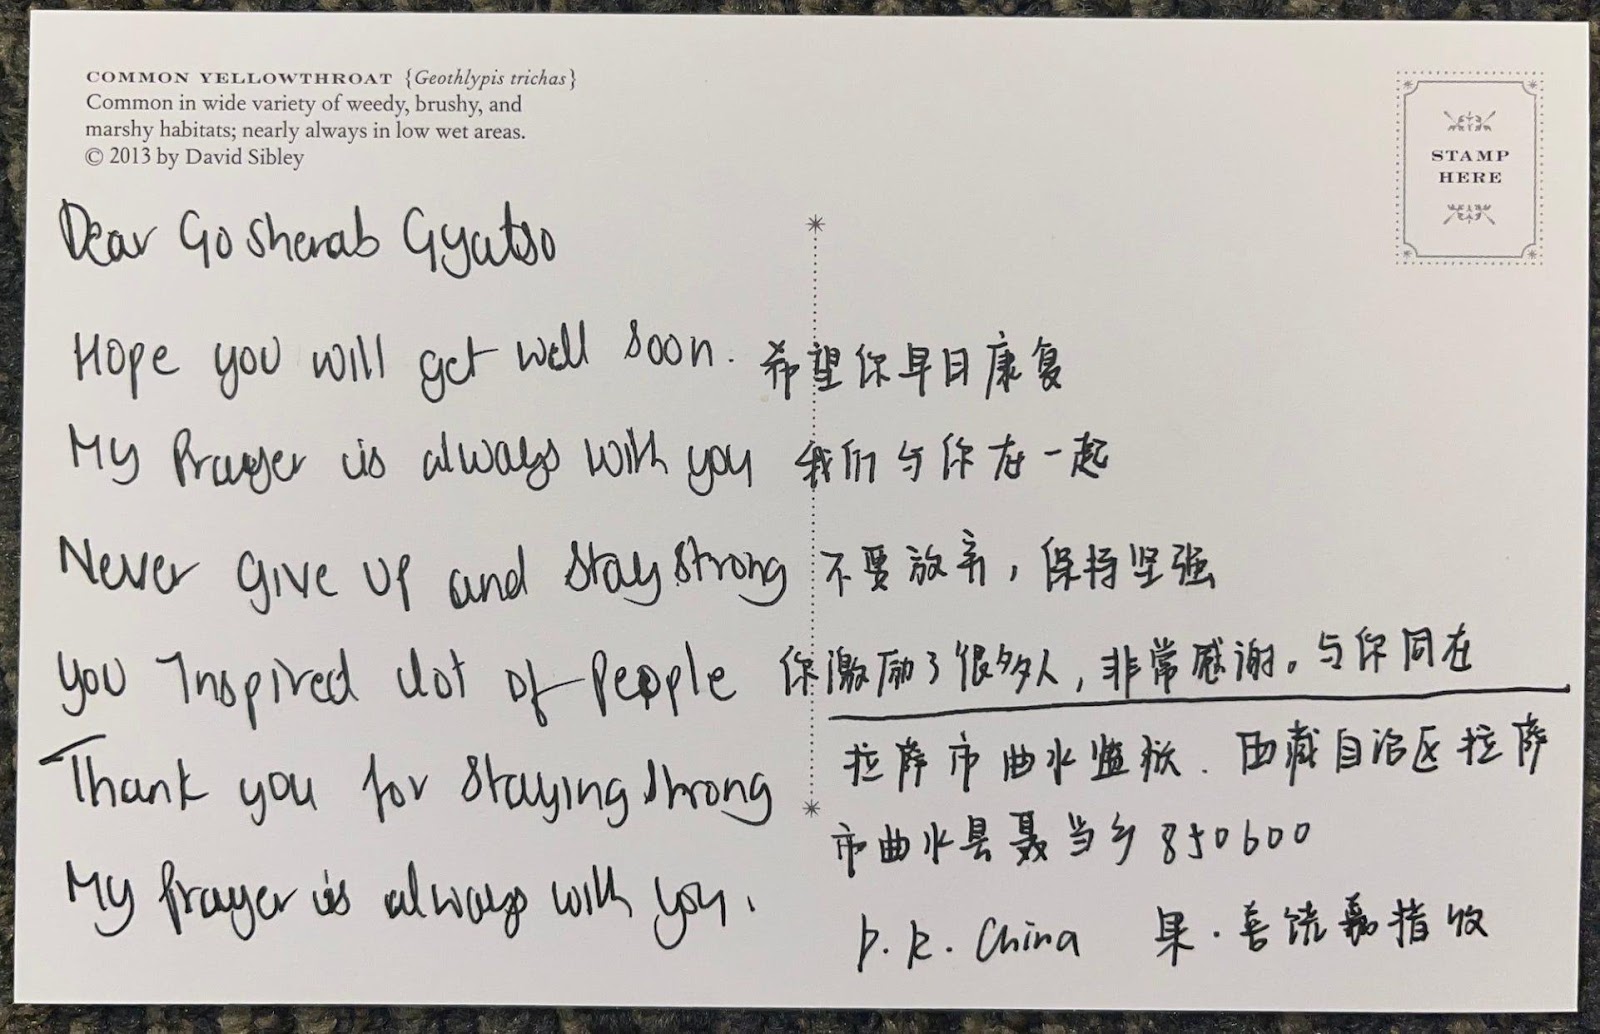 COMMON YELLOWTHROAT {Geothlypis trichas}
Common in wide variety of weedy, brushy, and
marshy habitats; nearly always in low wet areas.
© 2013 by David Sibley
STAMP
HERE
Dear Go Sherab Gyatso
Hope you will get well soon. 希望你早日康复
My Prayer is always with you 我们与你在一起
Never give up and stay strong 不要放弃，保持坚强
you Inspired alot of People 你激励了很多人，非常感谢。与你同在
Thank you for staying strong
My prayer is always with you.
拉萨市曲水监狱. 西藏自治区拉萨
市曲水县聂当乡 850600
P.R. China 果·喜饶嘉措收